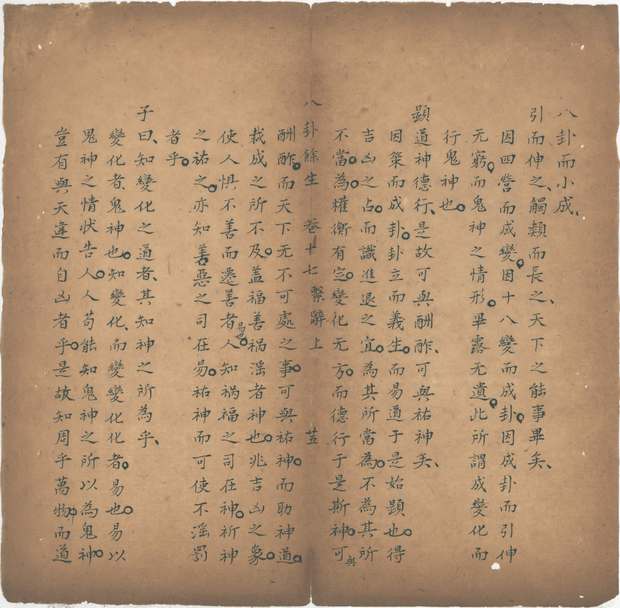 八卦而小成、
引而伸之、觸類而長之、天下之能事畢矣、
因四營而成變、因十八變而成卦。因成卦而引伸
无窮。而鬼神之情形。畢露无遺。此所謂成變化而
行鬼神也。
顯道神德行、是故可與酬酢、可與祐神矣、
因筞而成卦。卦立而義生。而易道于是始顯也。得
吉凶之占。而識進退之宜。為其所當為。不為其所
不當為。權衡有定。變化无方。而德行于是斯神。可與
八卦餘生 卷十七 繫辭上 荳
酬酢。而天下无不可處之事。可與祐神。而助神道
裁成之所不及。蓋福善禍淫者神也。兆吉凶之象。
使人惧不善而遷善者易。人知禍福之司在神。祈神
之祐之。亦知善惡之司在易。祐神而可使不淫罰
者乎。
子曰、知變化之道者、其知神之所為乎、
變化者、鬼神也。知變化、而變變化化者。易也。易以
鬼神之情狀告人。人苟能知鬼神之所以為鬼神。
豈有與天違而自凶者乎。是故知周乎萬物。而道